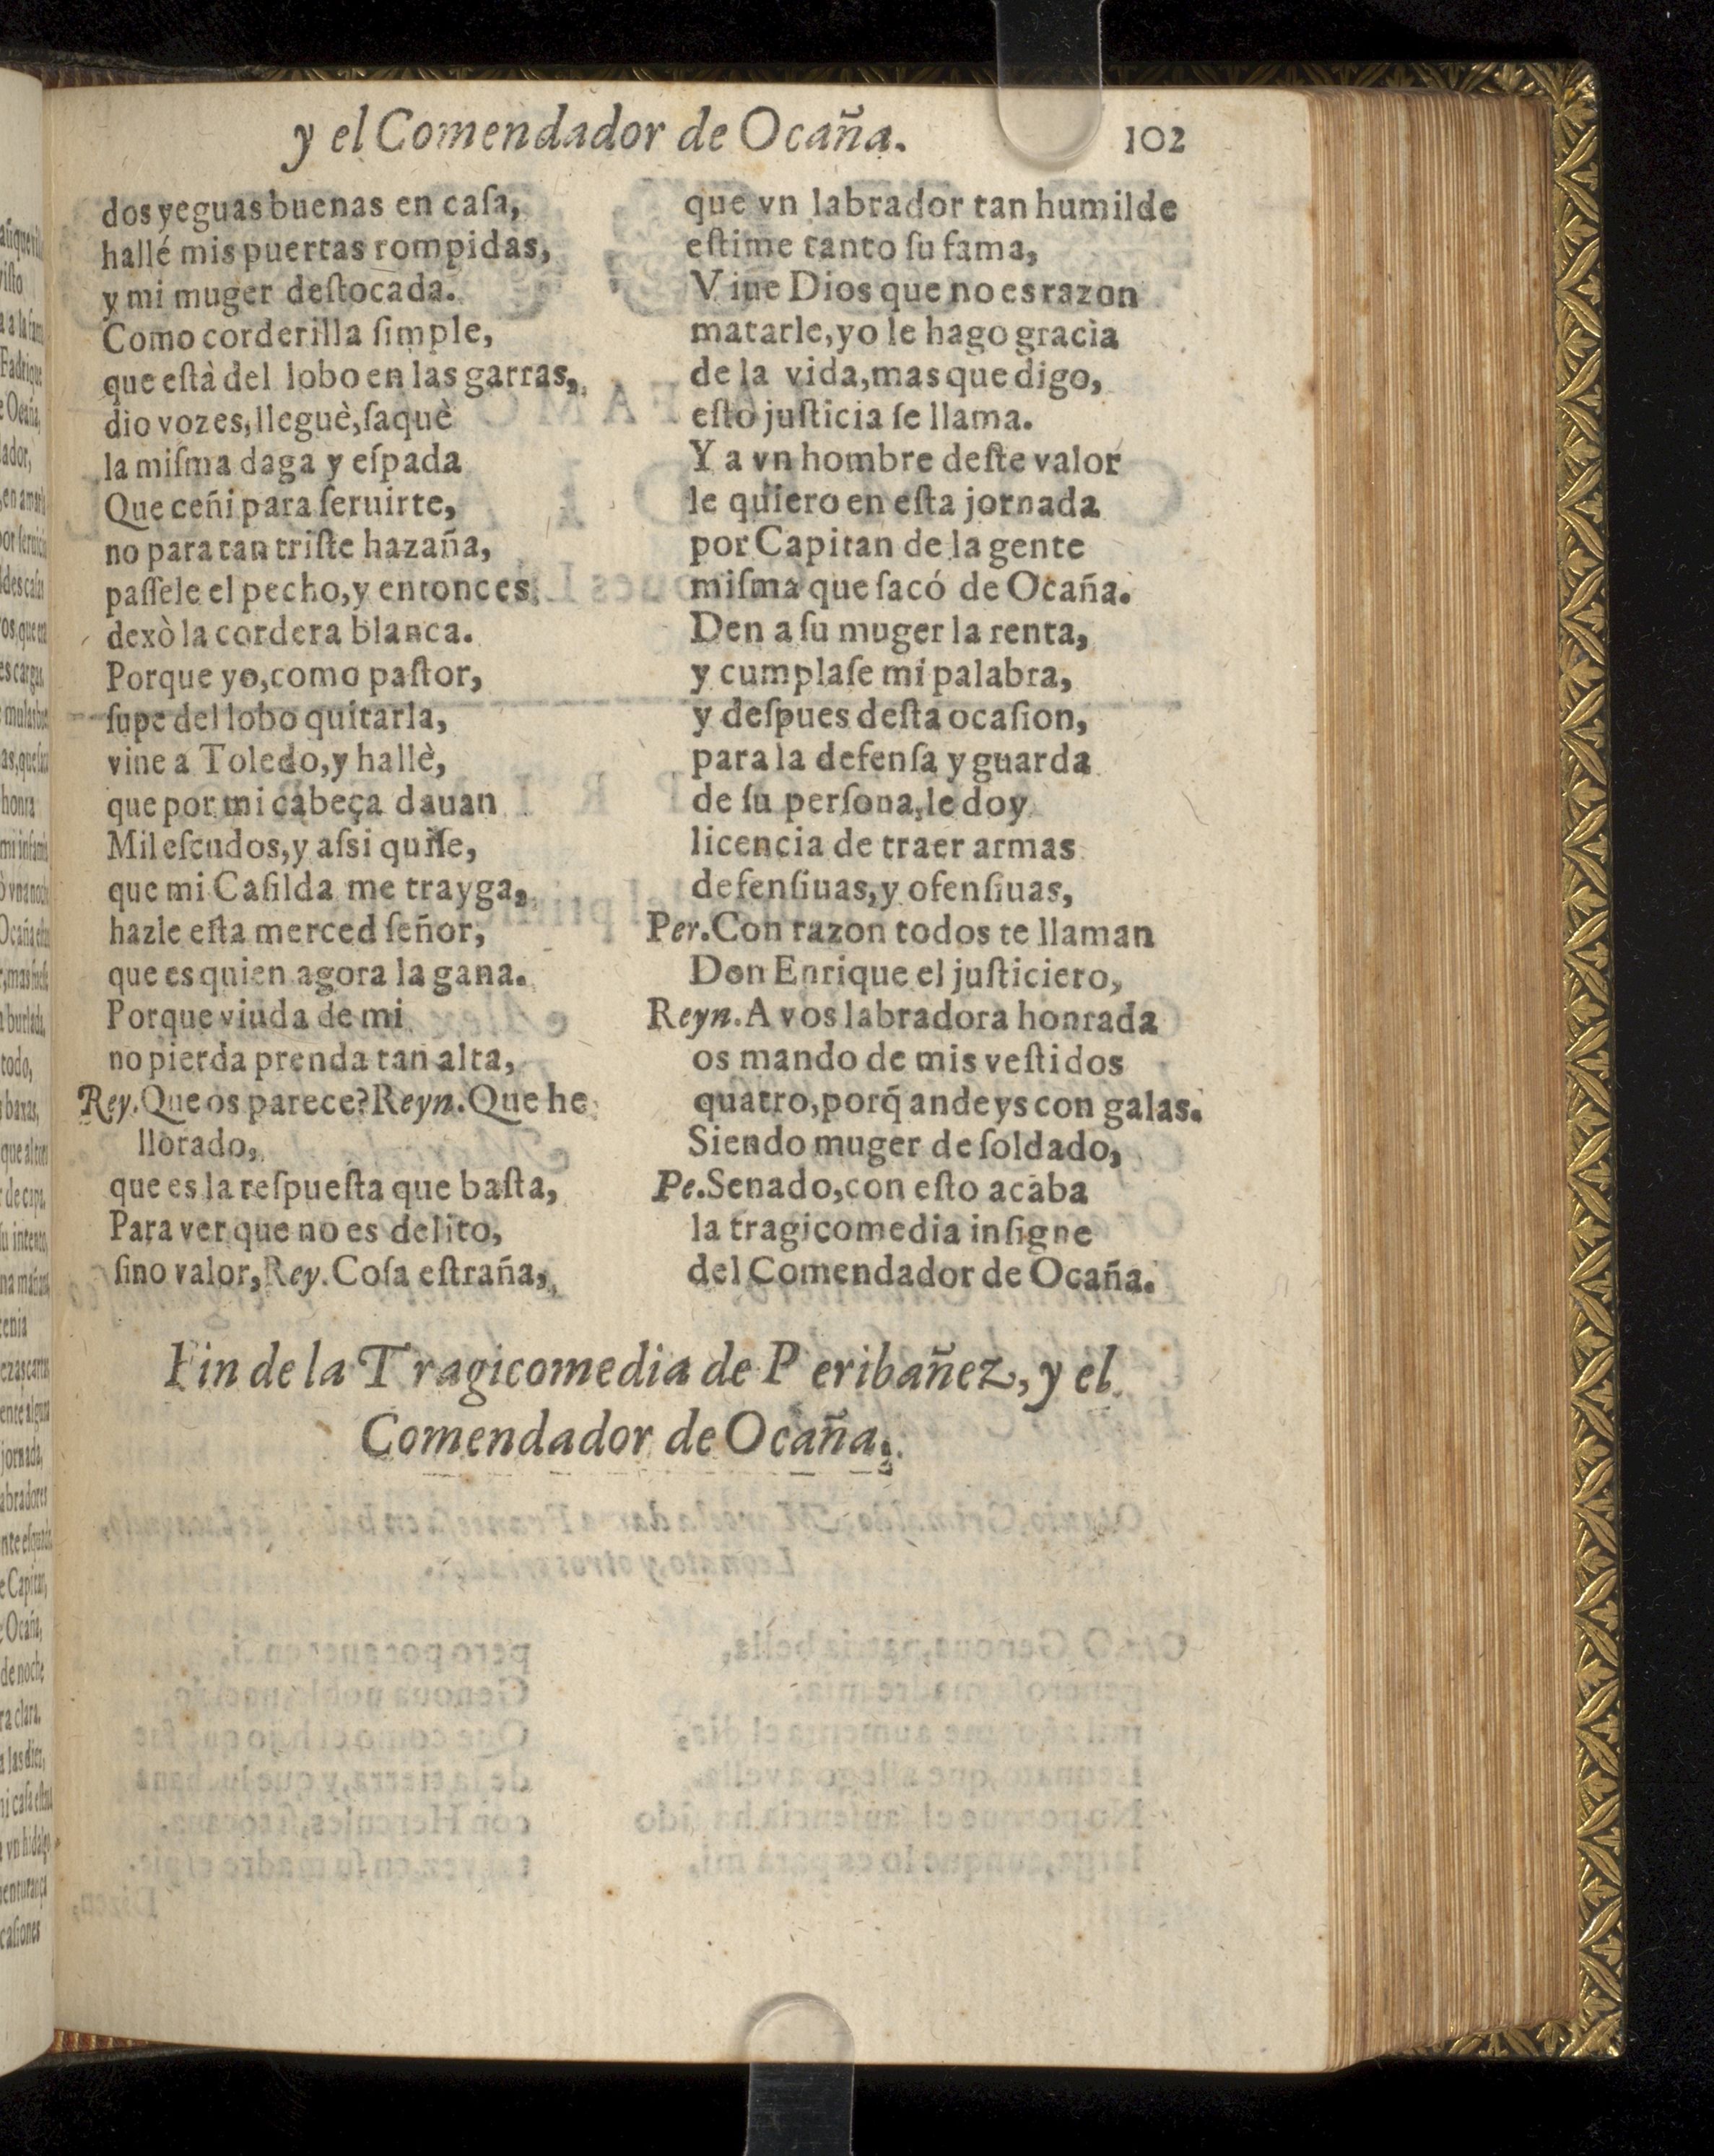 y el Comendador de Ocaña. 102
dos yeguas buenas en caſa,
hallé mis puertas rompidas,
y mi muger deſtocada.
Como corderilla ſimple,
que eſtà del lobo en las garras,
dio vozes, lleguè, ſaquè
la miſma daga y eſpada
Que ceñi para ſeruirte,
no para tan triſte hazaña,
paſſele el pecho, y entonces
dexò la cordera blanca.
Porque yo, como paſtor,
ſupe del lobo quitarla,
vine a Toledo, y hallè,
que por mi cabeça dauan
Mil eſcudos, y aſsi quiſe,
que mi Caſilda me trayga,
hazle eſta merced ſeñor,
que es quien agora la gana.
Porque viuda de mi
no pierda prenda tan alta,
Rey. Que os parece? Reyn. Que he
llorado,
que es la reſpueſta que baſta,
Para ver que no es delito,
ſino valor, Rey. Coſa eſtraña,
que vn labrador tan humilde
eſtime tanto ſu fama,
Viue Dios que no es razon
matarle, yo le hago gracia
de la vida, mas que digo,
eſto juſticia ſe llama.
Y a vn hombre deſte valor
le quiero en eſta jornada
por Capitan de la gente
miſma que ſacó de Ocaña.
Den a ſu muger la renta,
y cumplaſe mi palabra,
y deſpues deſta ocaſion,
para la defenſa y guarda
de ſu perſona, le doy
licencia de traer armas
defenſiuas, y ofenſiuas,
Per. Con razon todos te llaman
Don Enrique el juſticiero,
Reyn. A vos labradora honrada
os mando de mis veſtidos
quatro, porq̃ andeys con galas.
Siendo muger de ſoldado,
Pe. Senado, con eſto acaba
la tragicomedia inſigne
del Comendador de Ocaña.
Fin de la Tragicomedia de Peribañez, y el
Comendador de Ocaña.